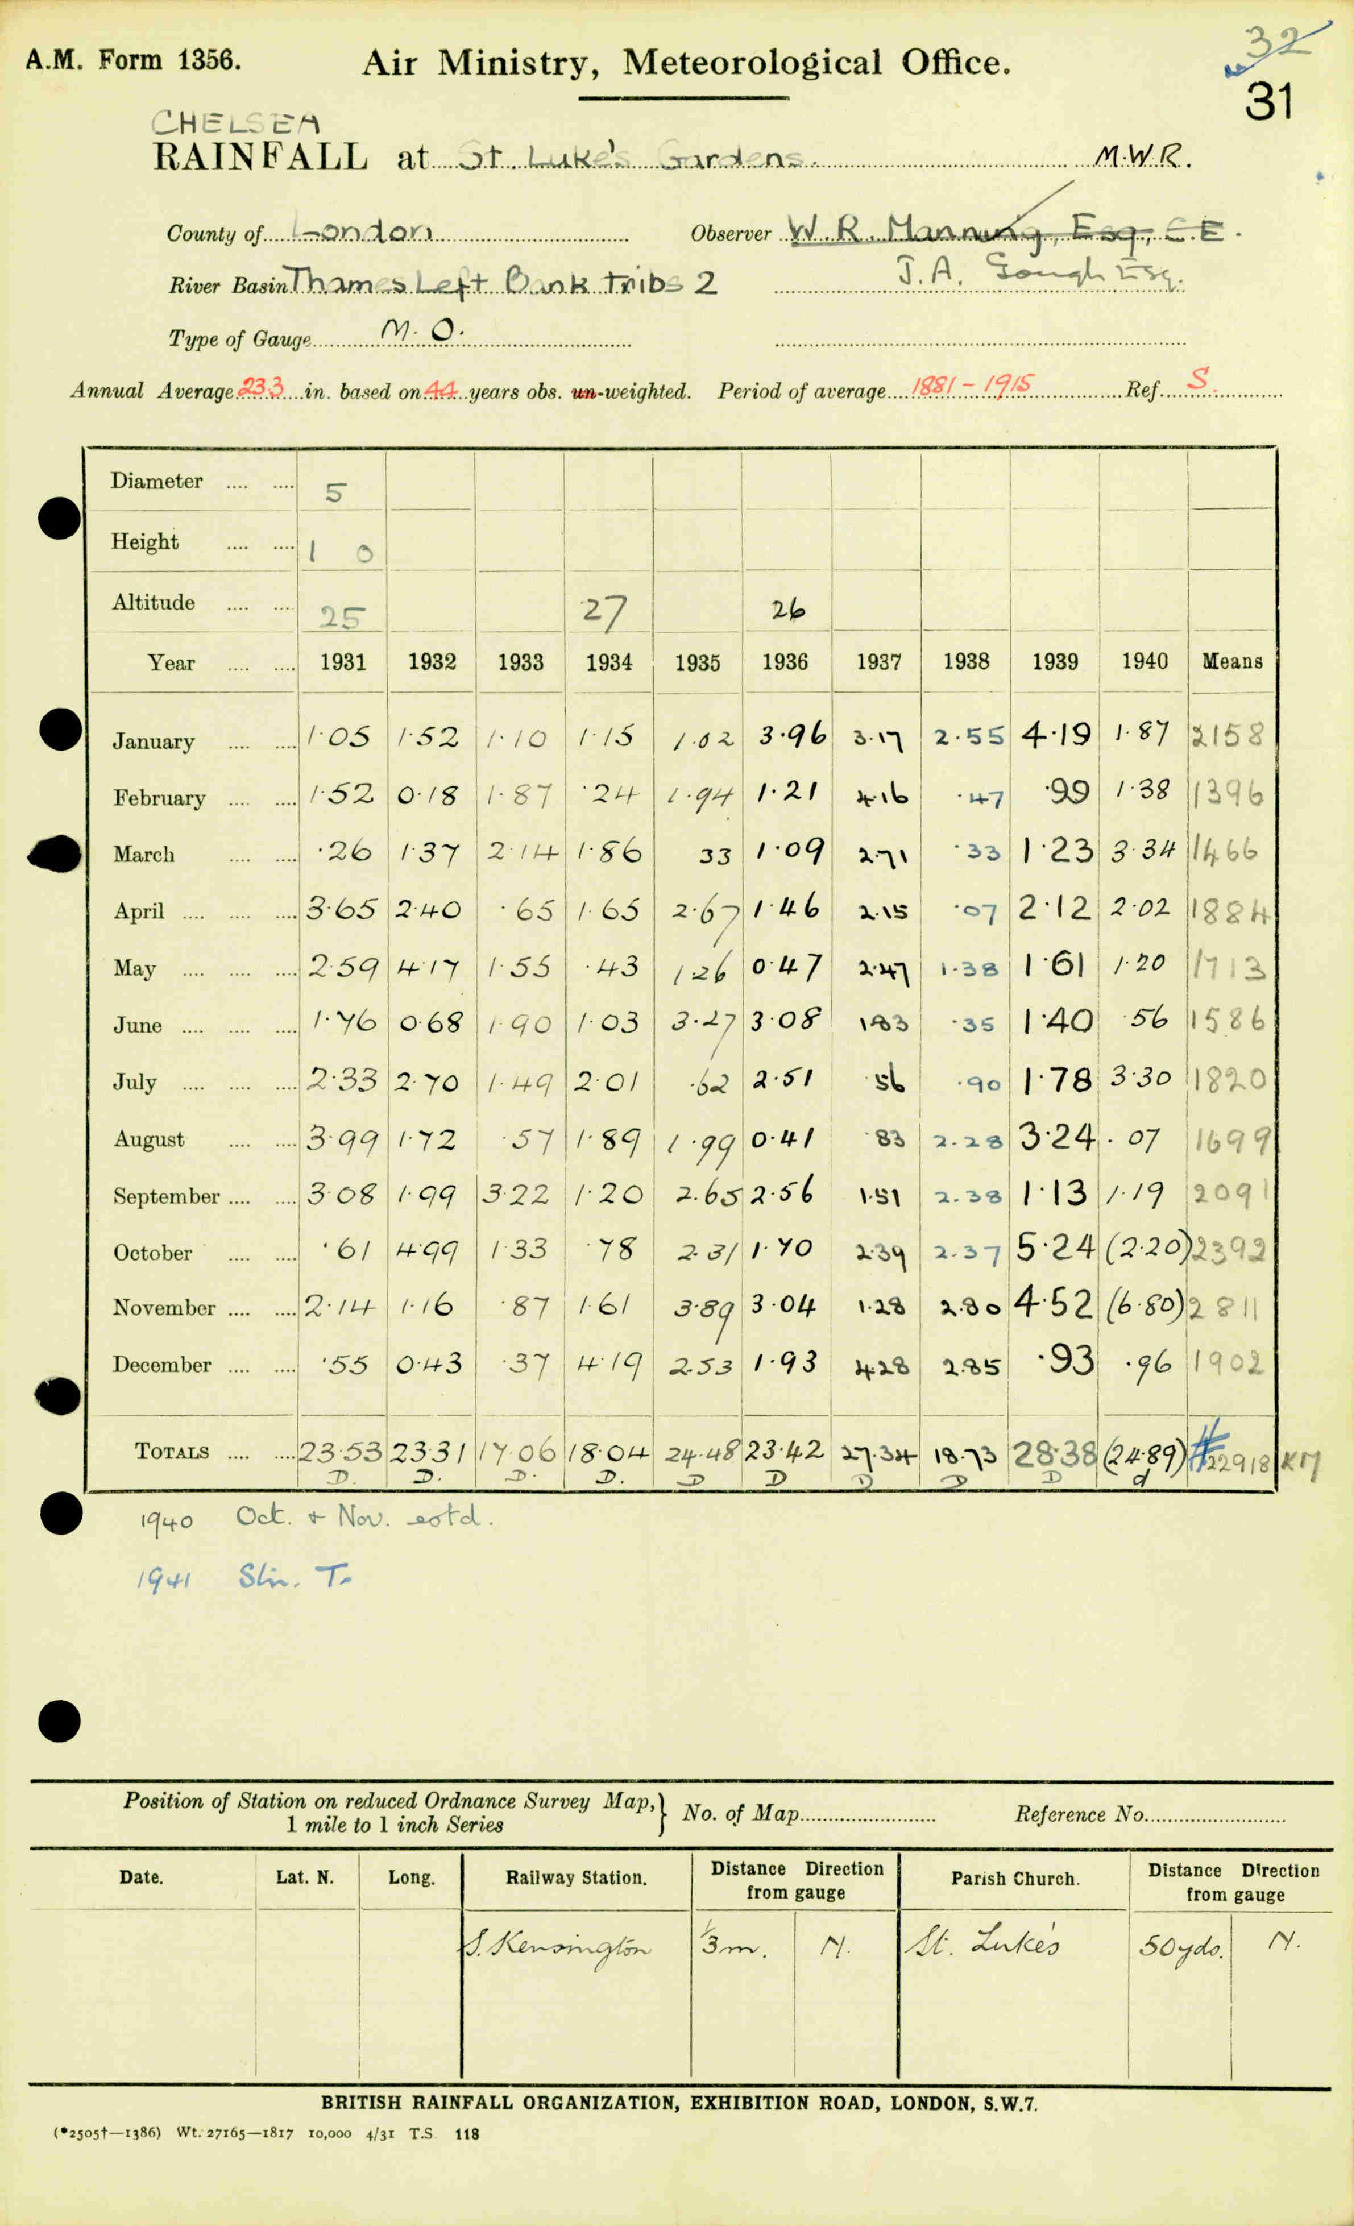 32
A.M. Form 1356. Air Ministry, Meteorological Office.
31
CHELSEA
RAINFALL at St. Luke's Gardens. M.W.R.
County of London Observer W. R. Manning, Esq., C.E.
River Basin Thames Left Bank tribs 2 J. A. Gough Esq.
Type of Gauge M.O.
Annual Average 23.3 in. based on 44 years obs. un-weighted. Period of average 1881 - 1915 Ref. S.
Diameter .... .... 5
Height .... .... 1 0
Altitude .... .... 25 27 26
Year .... .... 1931 1932 1933 1934 1935 1936 1937 1938 1939 1940 Means
January .... .... 1.05 1.52 1.10 1.15 1.02 3.96 3.17 2.55 4.19 1.87 2158
February .... .... 1.52 0.18 1.87 .24 1.94 1.21 4.16 .47 .99 1.38 1396
March .... .... .26 1.37 2.14 1.86 33 1.09 2.71 .33 1.23 3.34 1466
April .... .... .... 3.65 2.40 .65 1.65 2.67 1.46 2.15 .07 2.12 2.02 1884
May .... .... .... 2.59 4.17 1.55 .43 1.26 0.47 2.47 1.38 1.61 1.20 1713
June .... .... .... 1.76 0.68 1.90 1.03 3.27 3.08 1.83 .35 1.40 .56 1586
July .... .... .... 2.33 2.70 1.49 2.01 .62 2.51 .56 .90 1.78 3.30 1820
August .... .... 3.99 1.72 .57 1.89 1.99 0.41 .83 2.28 3.24 .07 1699
September .... .... 3.08 1.99 3.22 1.20 2.65 2.56 1.51 2.38 1.13 1.19 2091
October .... .... .61 4.99 1.33 .78 2.31 1.70 2.39 2.37 5.24 (2.20) 2392
November .... .... 2.14 1.16 .87 1.61 3.89 3.04 1.28 2.80 4.52 (6.80) 2811
December .... .... .55 0.43 .37 4.19 2.53 1.93 4.28 2.85 .93 .96 1902
TOTALS .... .... 23.53 23.31 17.06 18.04 24.48 23.42 27.34 18.73 28.38 (24.89) # 22918 KM
D. D. D. D. D D D D D d
1940 Oct. + Nov. estd.
1941 Stn. T.
Position of Station on reduced Ordnance Survey Map, } No. of Map Reference No.
1 mile to 1 inch Series
Date. Lat. N. Long. Railway Station. Distance Direction from gauge Parish Church. Distance Direction from gauge
S. Kensington 1/3 m. N. St. Luke's 50 yds. N.
BRITISH RAINFALL ORGANIZATION, EXHIBITION ROAD, LONDON, S.W.7.
(*2505†—1386) Wt. 27165—1817 10,000 4/31 T.S. 118